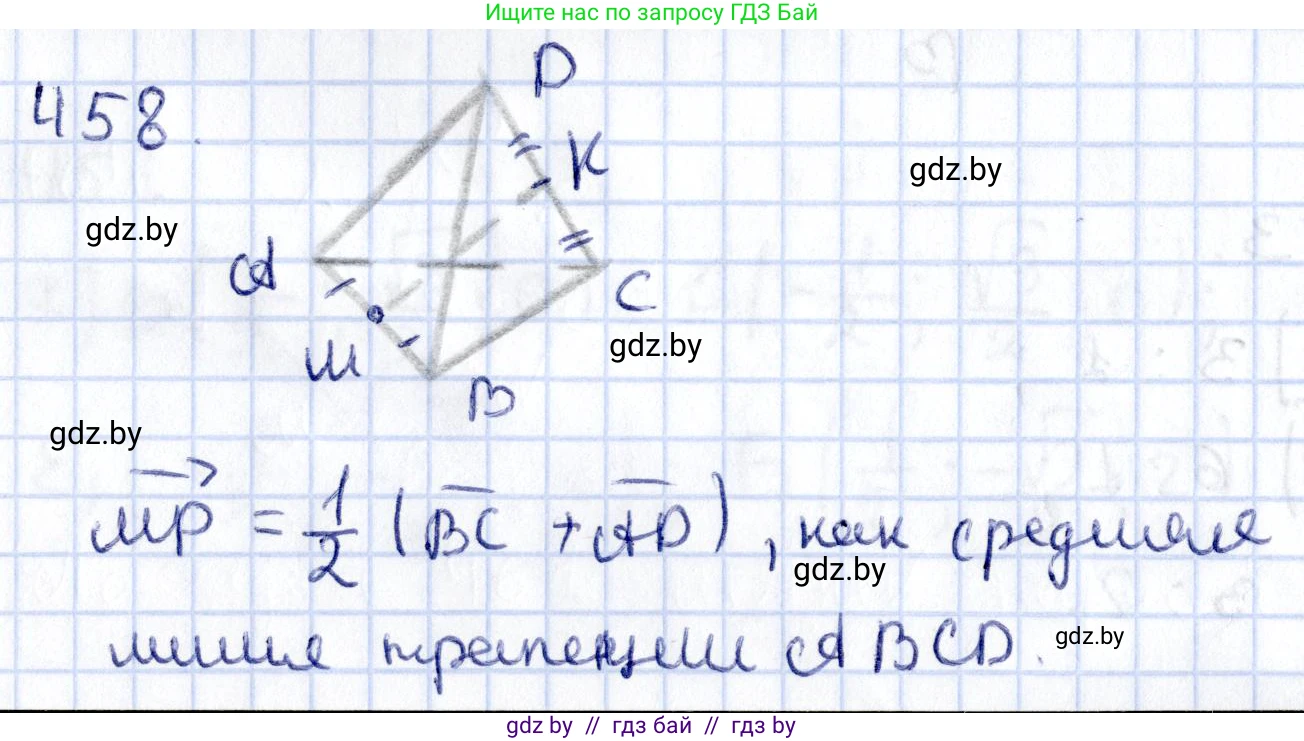 Ищите нас по запросу ГДЗ Бай
458.
D
K
gdz.by
gdz.by
A
C
M
gdz.by
B
gdz.by
MP = 1/2 (BC + AD), как средняя
gdz.by
линия трапеции ABCD.
gdz.by
gdz.by // гдз бай // гдз by